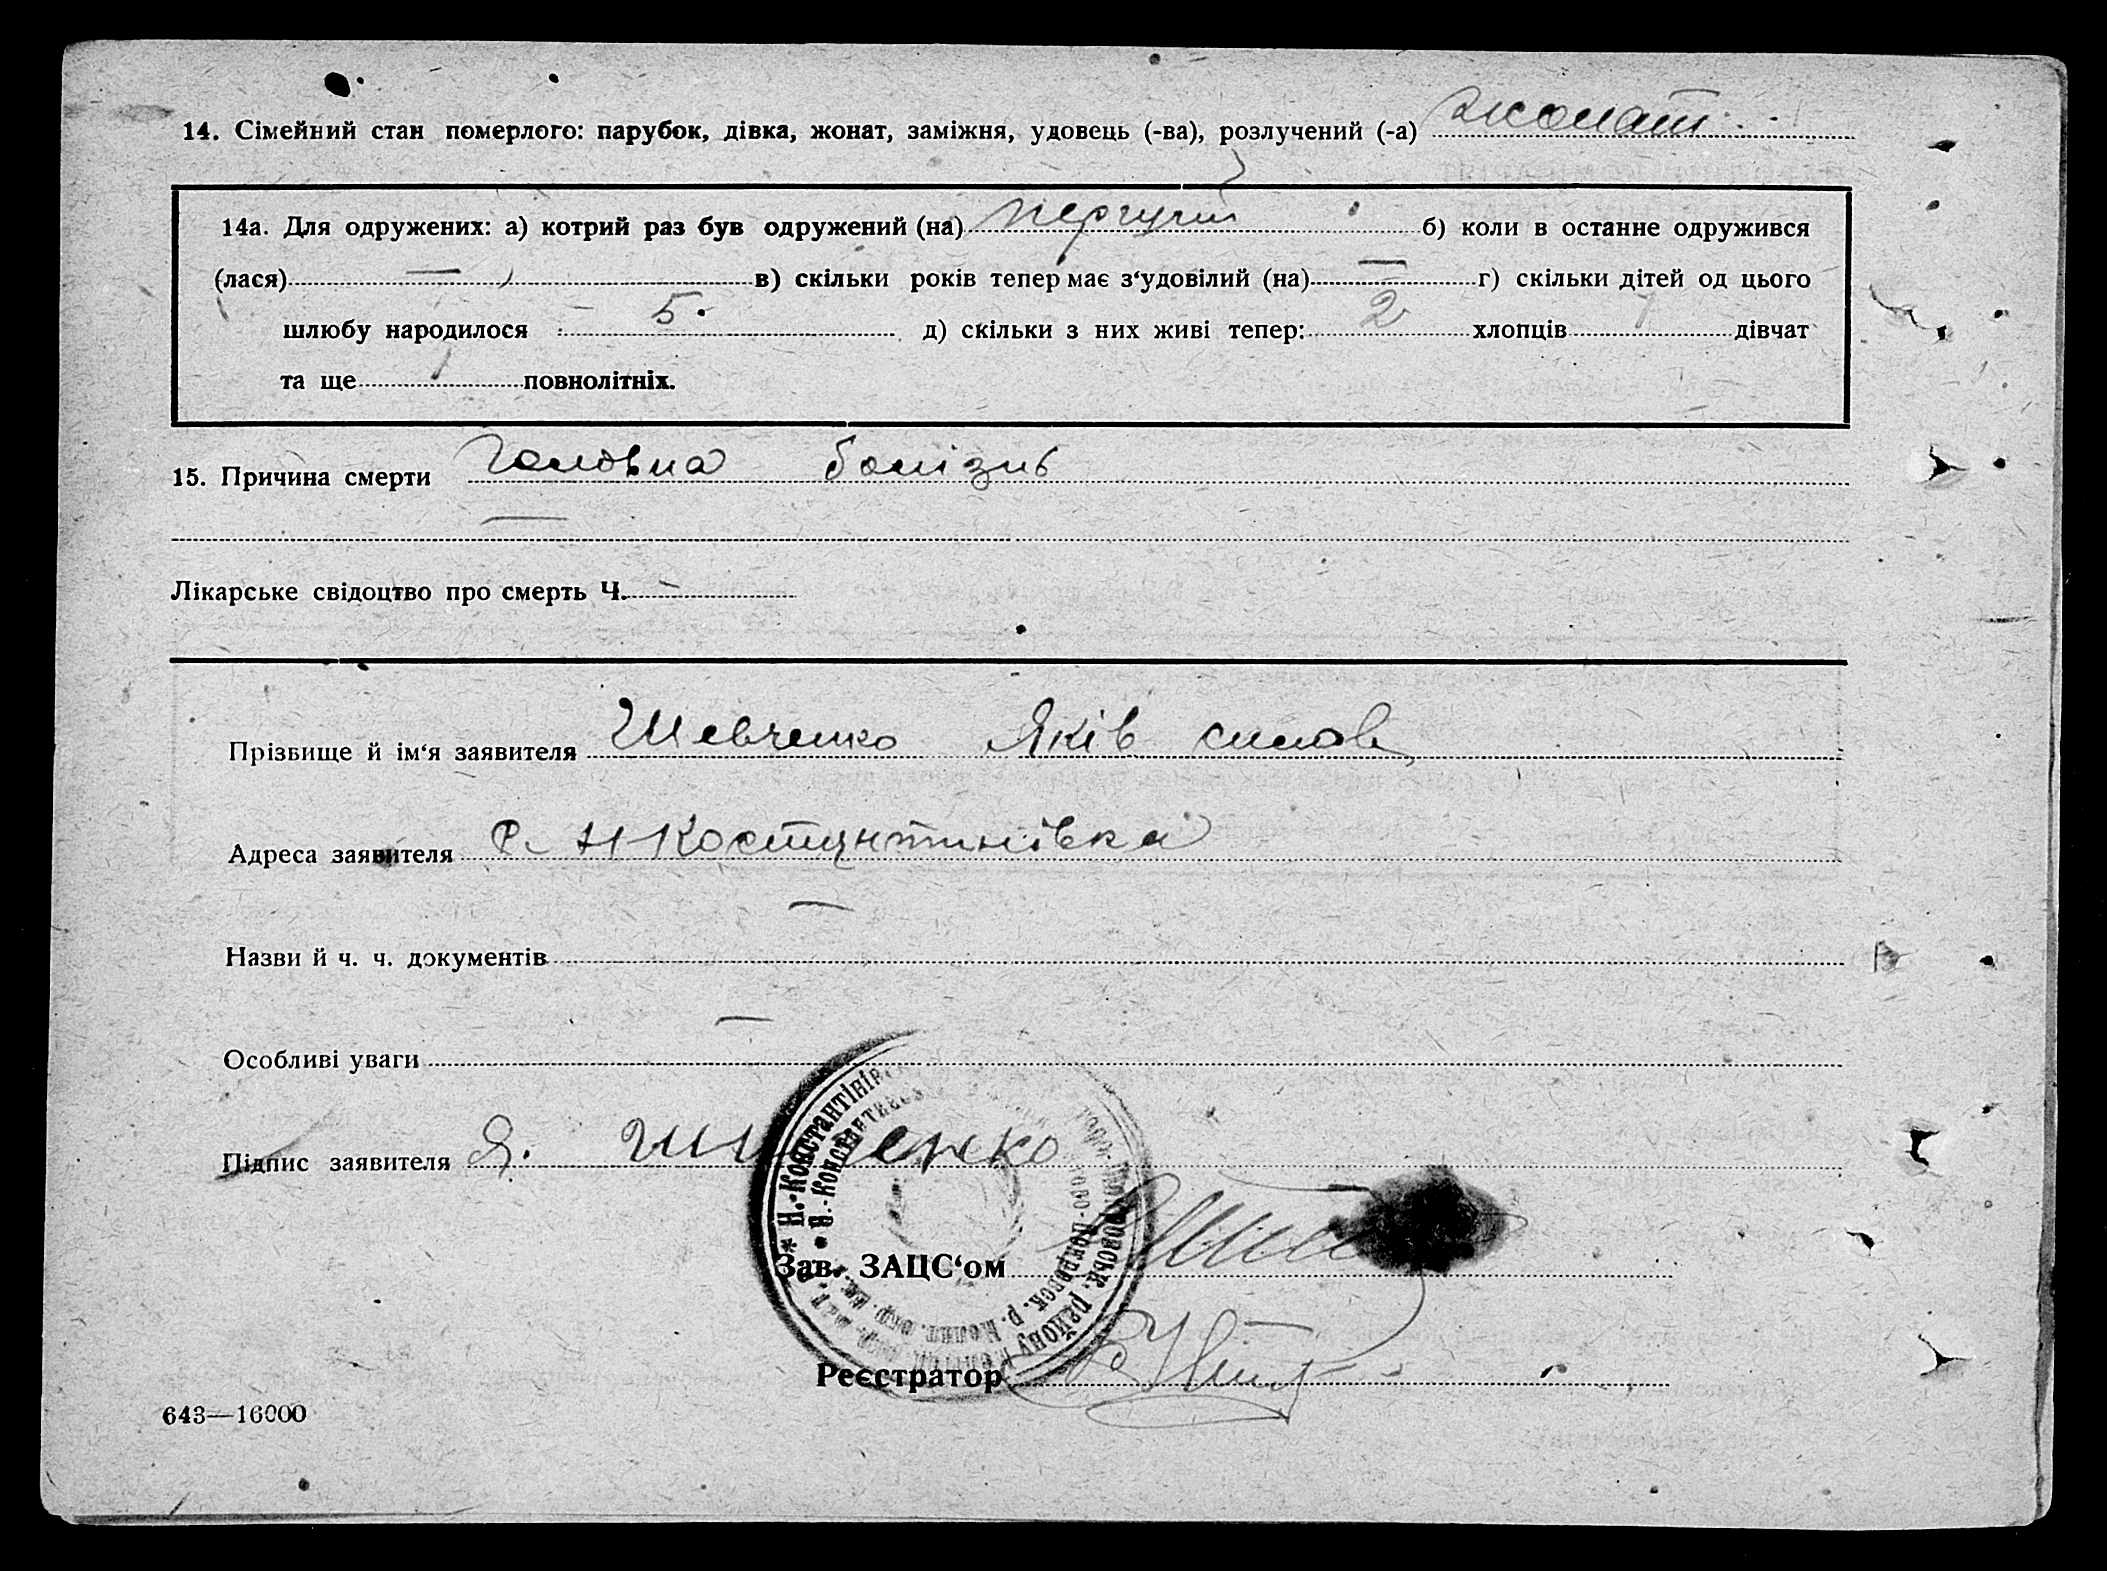 14. Сімейний стан померлого: парубок, дівка, жонат, заміжня, удовець (-ва), розлучений (-а) жонат
14а. Для одружених: а) котрий раз був одружений (на) б) коли в останне одружився
(лася) — в) скільки років тепер має з‘удовілий (на) — г) скільки дітей од цього
шлюбу народилося 5. д) скільки з них живі тепер: 2 хлопців 1 дівчат
та ще 1 повнолітніх.
15. Причина смерти Головна болізнь
—
Лікарське свідоцтво про смерть Ч. –
Прізвище й ім‘я заявителя Шевченко Яків
Адреса заявителя Н-Костянтинівка
Назви й ч. ч. документів —
Особливі уваги —
Підпис заявителя Я.
* Н.-Константінів
Н.-Константиновск
Покровськ. району
Ново-Покровск. р.
Зав. ЗАЦС‘ом
Реєстратор
643—16000